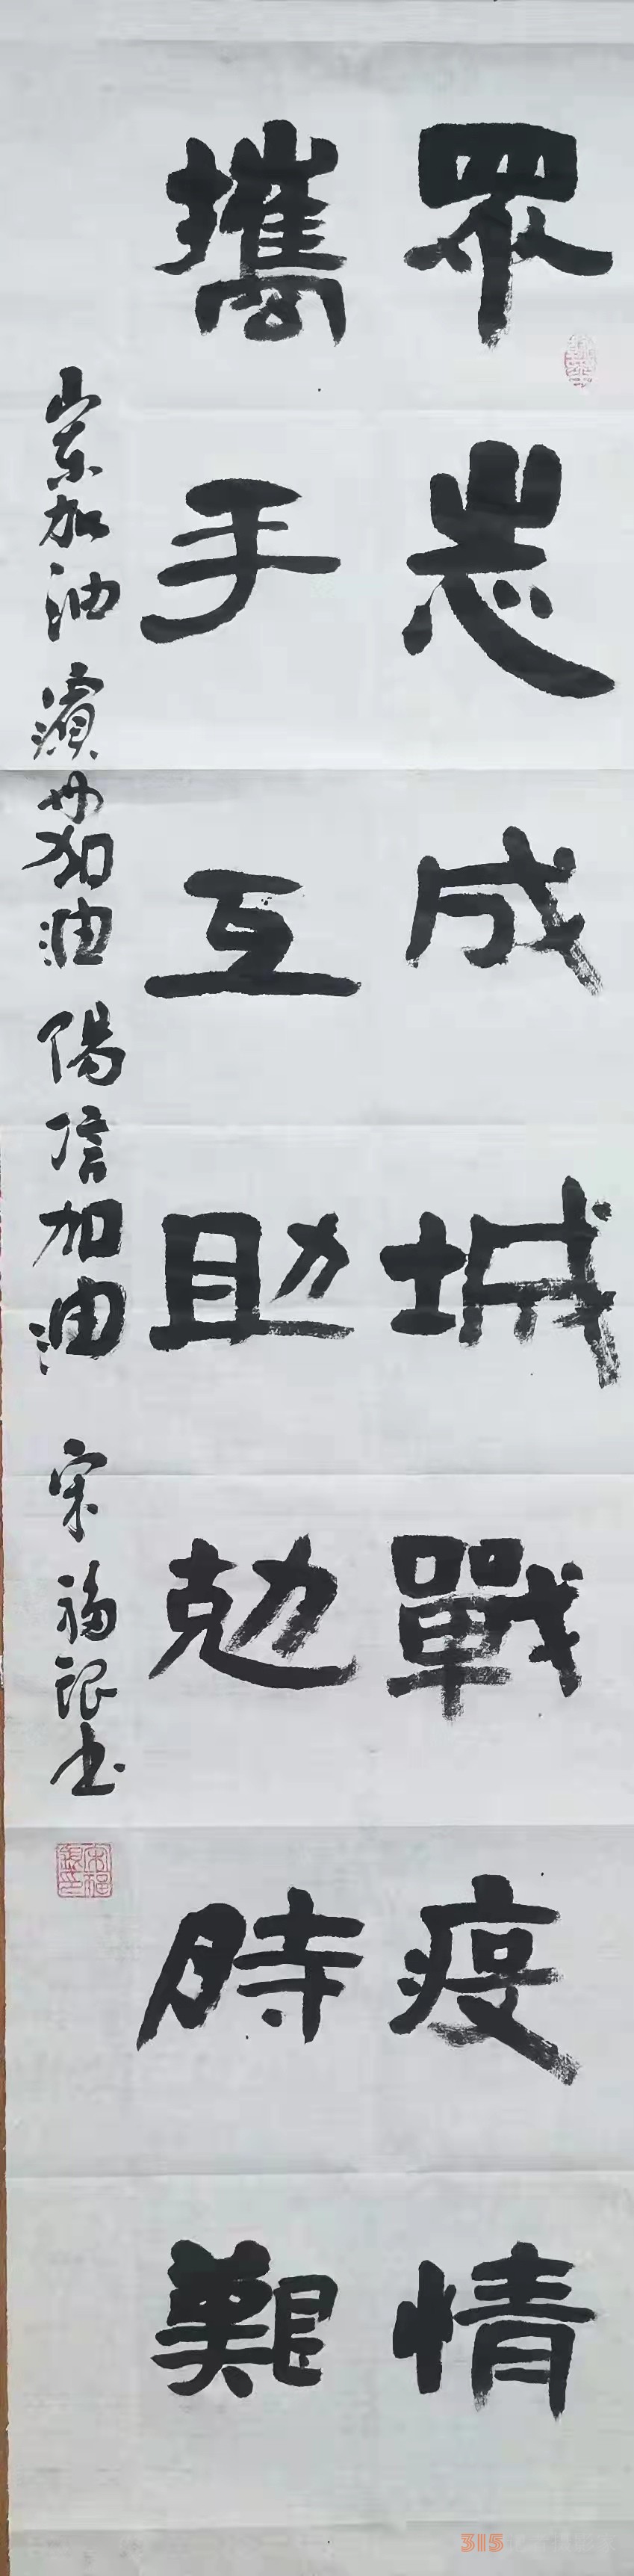 眾志成城戰疫情
攜手互助勊時艱
山東加油濱州加油陽信加油 宋福銀书
宋福銀印
315